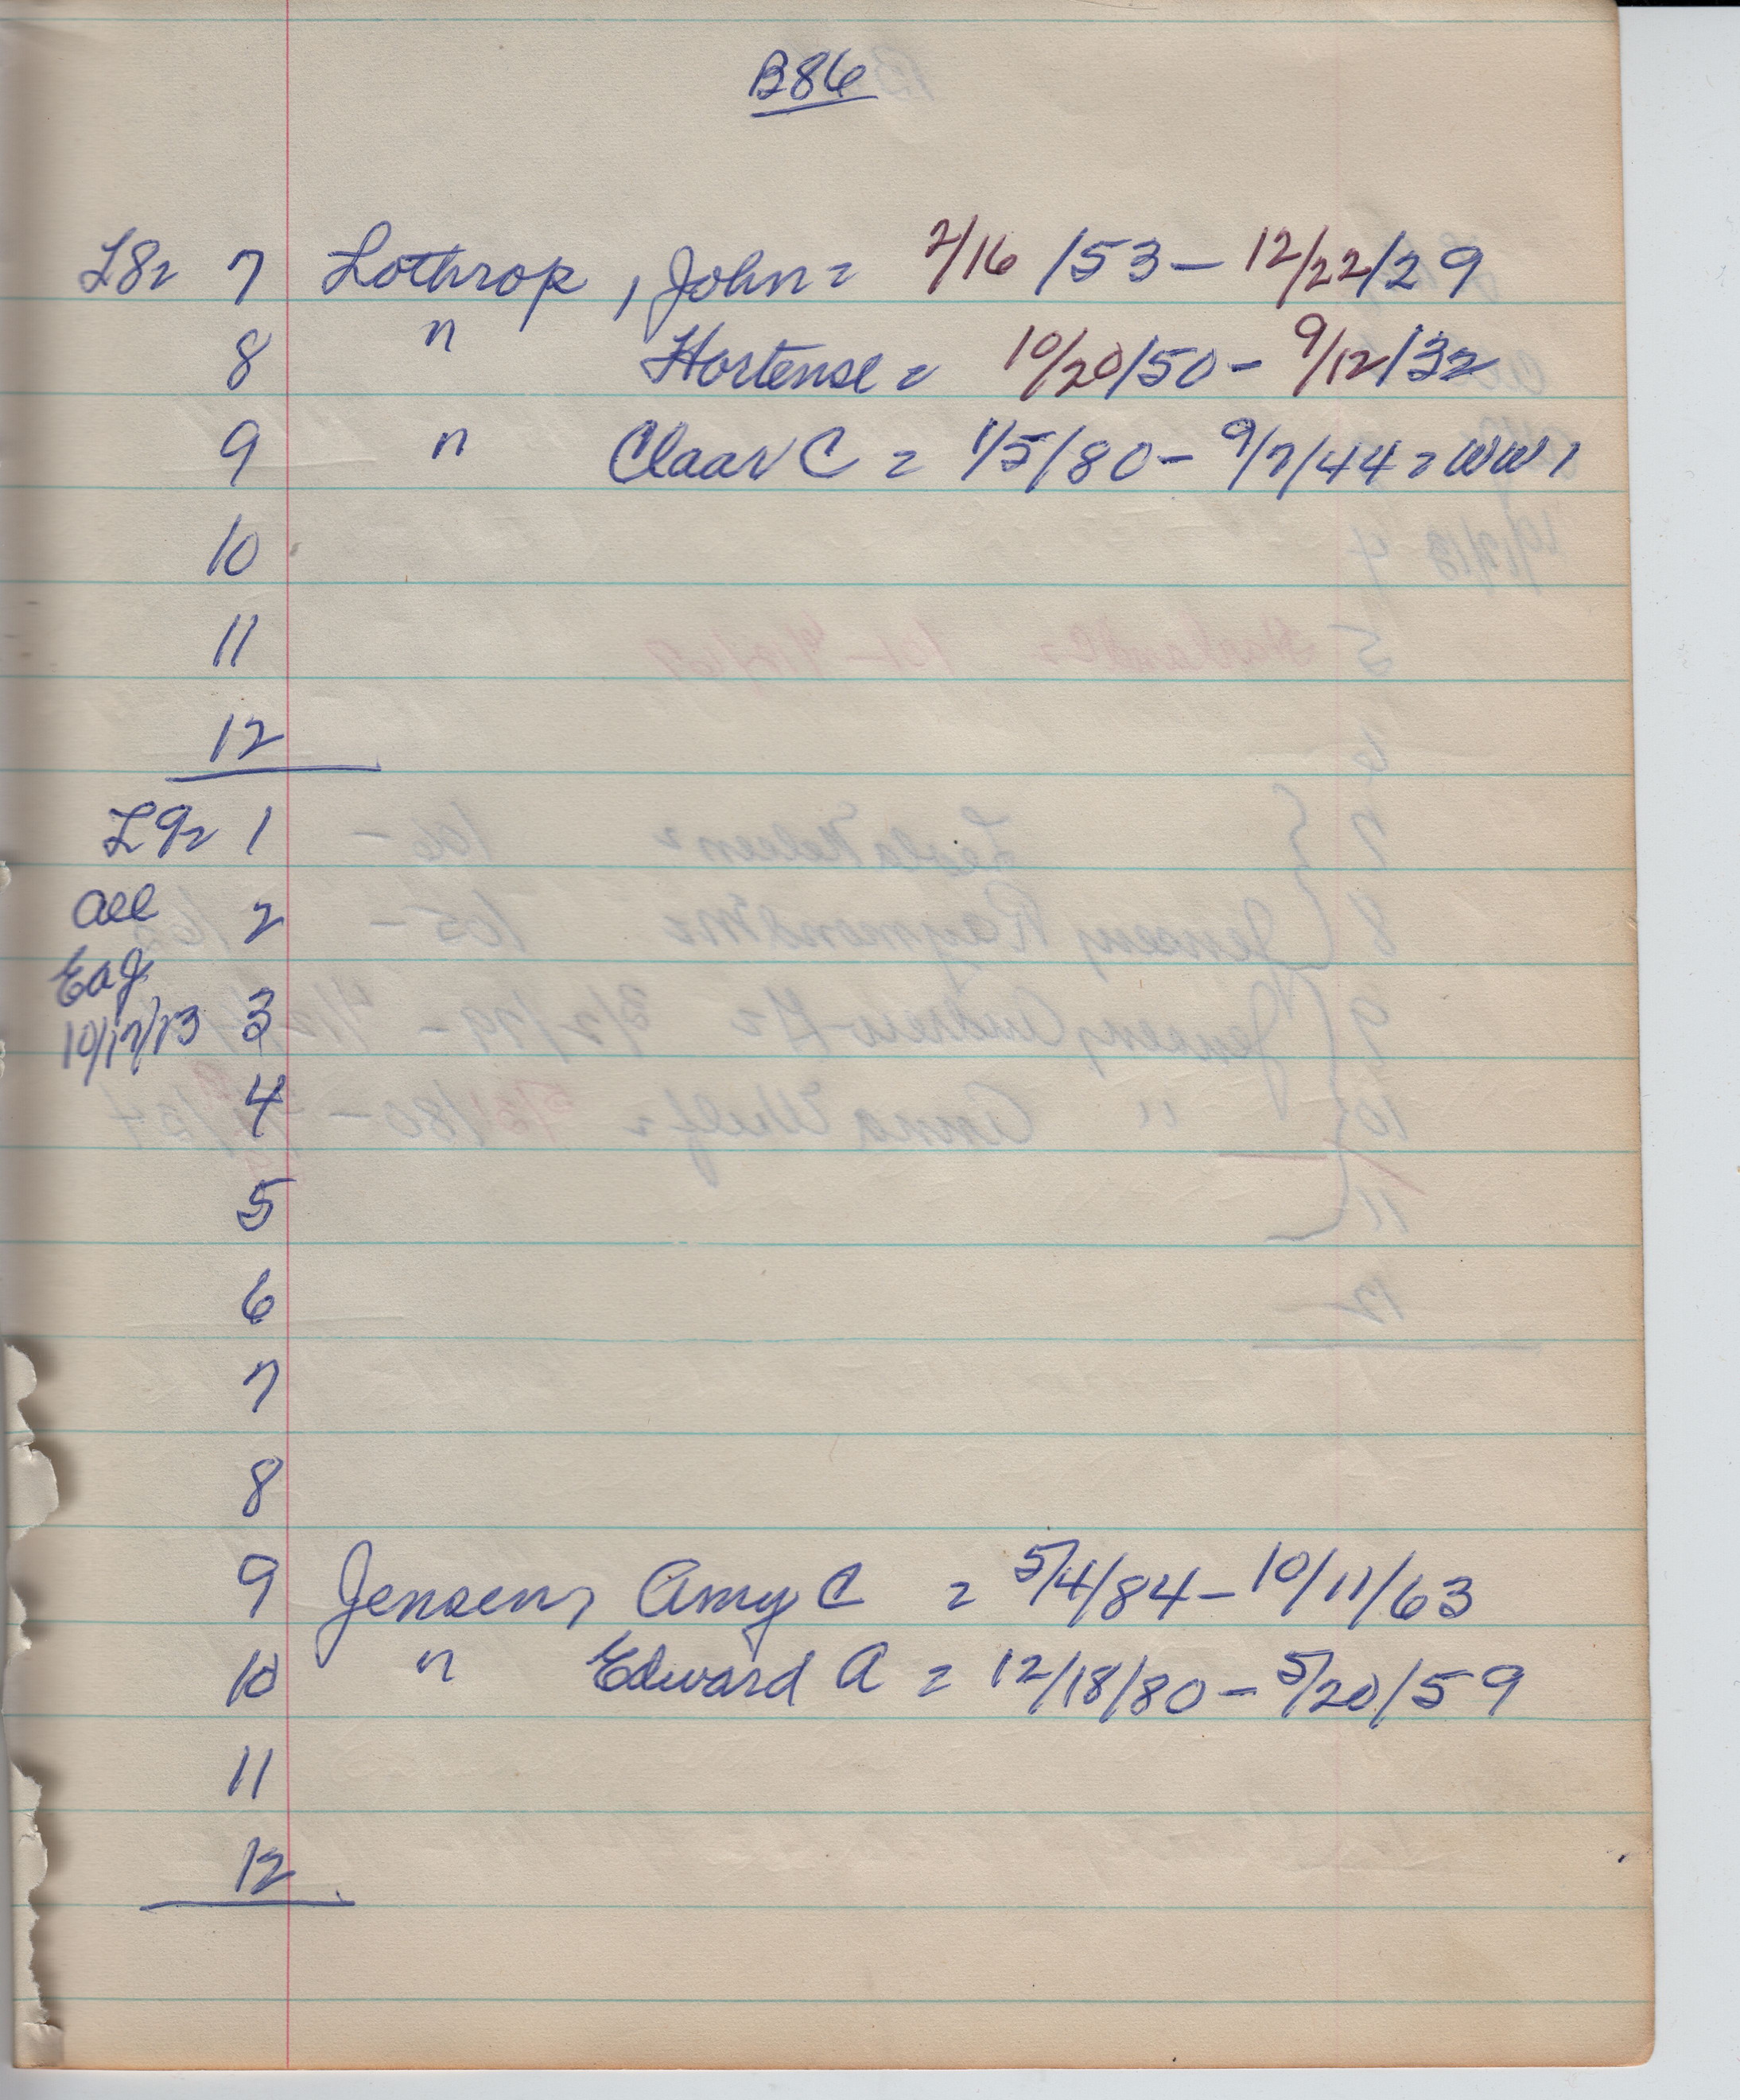 B86
L8= 7 Lothrop, John = 2/16/53 – 12/22/29
8 " Hortense = 10/20/50 – 9/12/32
9 " Claar C = 1/5/80 – 9/7/44 = WW1
10
11
12
L9= 1
all 2
Eag
10/17/13 3
4
5
6
7
8
9 Jensen, Amy C = 5/4/84 – 10/11/63
10 " Edward A = 12/18/80 – 5/20/59
11
12